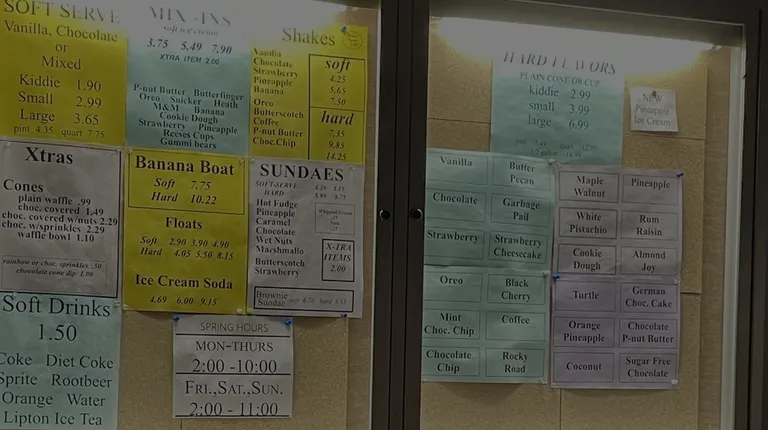 SOFT SERVE
Vanilla, Chocolate
or
Mixed
Kiddie 1.90
Small 2.99
Large 3.65
pint 4.35 quart 7.75
MIX-INS
3.75 5.49 7.90
XTRA ITEM 2.00
P-nut Butter Butterfinger
Oreo Snicker Heath
M&M Banana
Cookie Dough
Strawberry Pineapple
Reeses Cups
Gummi bears
Shakes
Vanilla
Chocolate
Strawberry
Pineapple
Banana
Oreo
Butterscotch
Coffee
P-nut Butter
Choc.Chip
soft
4.25
5.65
7.50
hard
7.35
9.85
14.25
Xtras
Cones
plain waffle .99
choc. covered 1.49
choc. covered w/nuts 2.29
choc. w/sprinkles 2.29
waffle bowl 1.10
rainbow or choc. sprinkles .50
chocolate cone dip 1.00
Banana Boat
Soft 7.75
Hard 10.22
Floats
Soft 2.90 3.90 4.90
Hard 4.05 5.50 8.15
Ice Cream Soda
4.69 6.00 9.15
SUNDAES
SOFT-SERVE
HARD
Hot Fudge
Pineapple
Caramel
Chocolate
Wet Nuts
Marshmallo
Butterscotch
Strawberry
X-TRA
ITEMS
2.00
Brownie
Sundae
Soft Drinks
1.50
Coke Diet Coke
Sprite Rootbeer
Orange Water
Lipton Ice Tea
SPRING HOURS
MON-THURS
2:00 -10:00
FRI.,SAT.,SUN.
2:00 - 11:00
HARD FLAVORS
PLAIN CONE OR CUP
kiddie 2.99
small 3.99
large 6.99
NEW
Pineapple
Ice Cream
Vanilla
Butter
Pecan
Chocolate
Garbage
Pail
Strawberry
Strawberry
Cheesecake
Oreo
Black
Cherry
Mint
Choc. Chip
Coffee
Chocolate
Chip
Rocky
Road
Maple
Walnut
Pineapple
White
Pistachio
Rum
Raisin
Cookie
Dough
Almond
Joy
Turtle
German
Choc. Cake
Orange
Pineapple
Chocolate
P-nut Butter
Coconut
Sugar Free
Chocolate